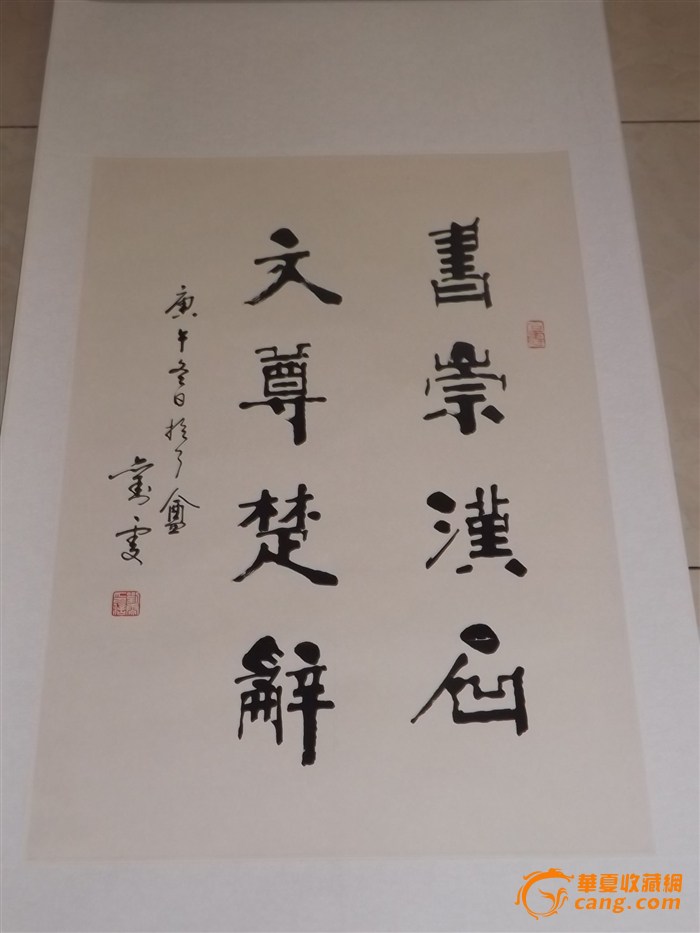 書崇漢
文尊楚辭
庚午冬日於了盦
華夏收藏網
cang.com